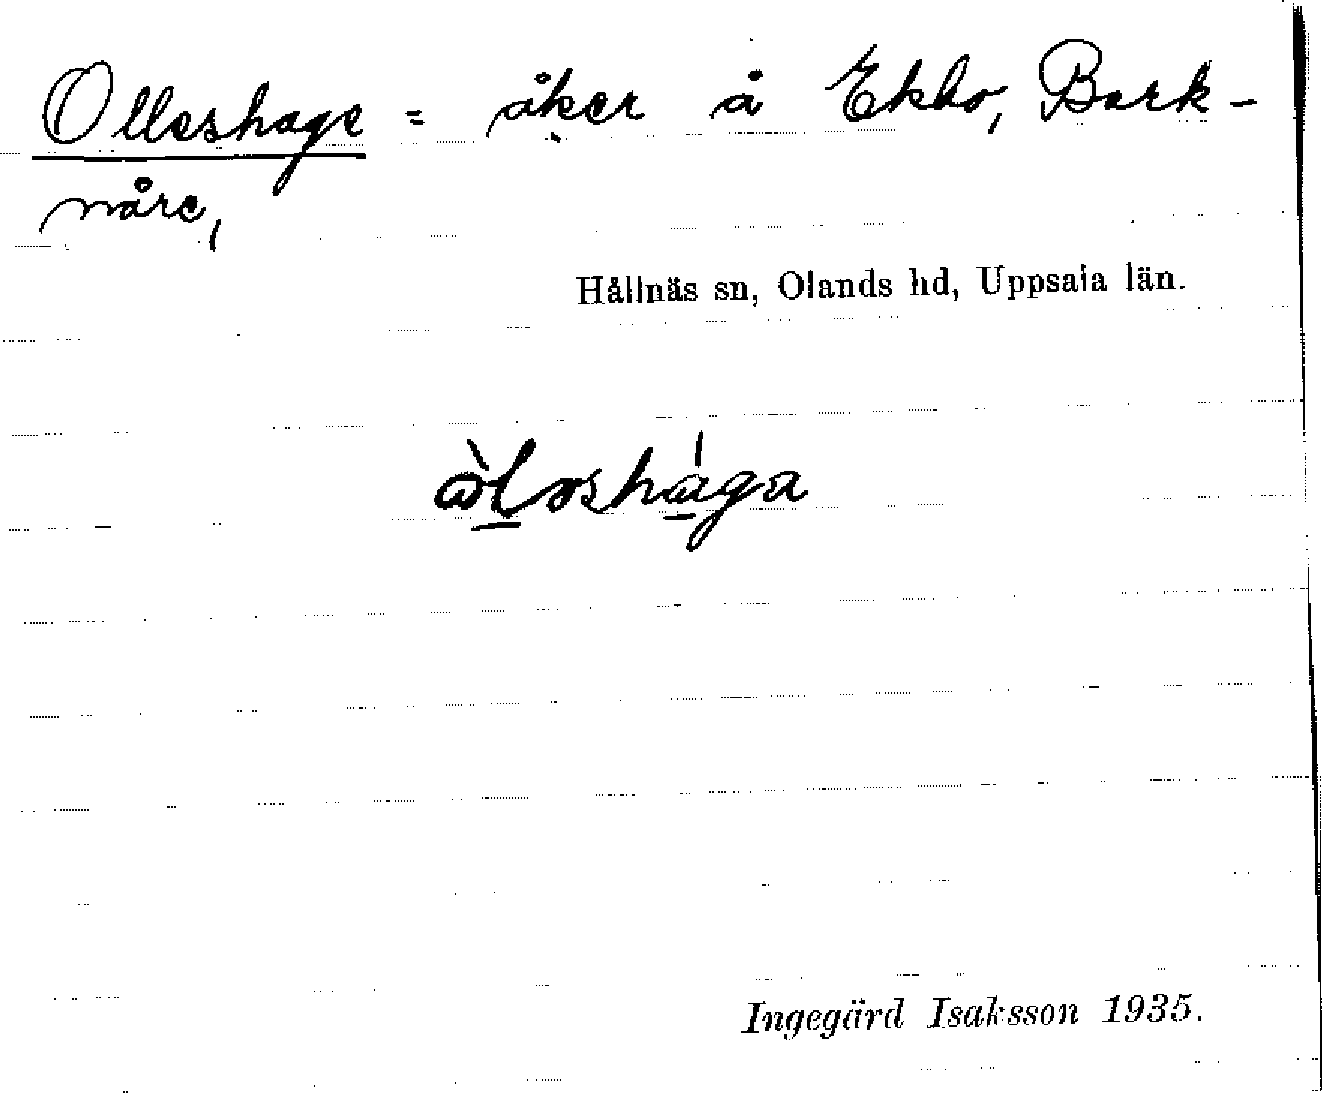 Olleshage = åker å Ekbo, Bark-
nåre,
Hållnäs sn, Olands hd, Uppsala län.
Ingegärd Isaksson 1935.